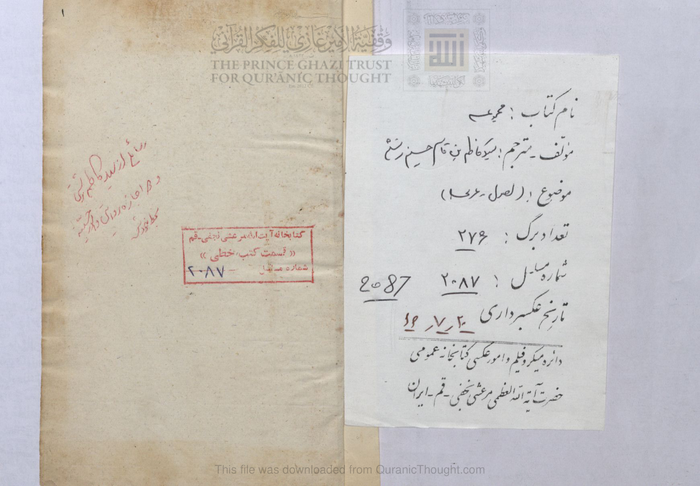 وقفية الأمير غازي للفكر القرآني
THE PRINCE GHAZI TRUST
FOR QURANIC THOUGHT
نام کتاب : مجموعه
مؤلف - مترجم : سید کاظم بن قاسم حسینی رشتی
موضوع : (
تعداد برگ : ۲۷۶
شماره مسلسل : ۲۰۸۷
2087
تاریخ عکسبرداری
دائره میکروفیلم و امور عکسی کتابخانه عمومی
حضرت آیة الله العظمی مرعشی نجفی - قم - ایران
از سید کاظم رشتی
کتابخانه آیت الله مرعشی نجفی - قم
« قسمت کتب خطی »
شماره ۲۰۸۷
This file was downloaded from QuranicThought.com